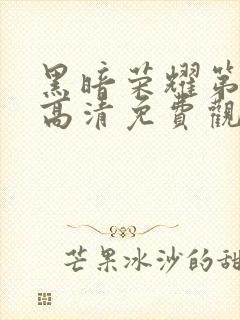 黑暗荣耀第
高清免費觀
芒果冰沙的甜